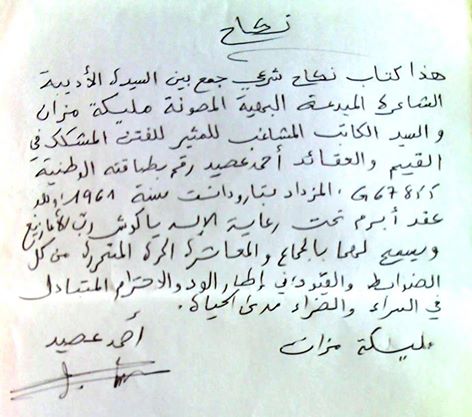 نكاح
هذا كتاب نكاح شرعي جمع بين السيدة الأديبة
الشاعرة المبدعة البهية المصونة مليكة مزان
والسيد الكاتب المشاغب المثير للفتن المشكك في
القيم والعقائد أحمد عصيد رقم بطاقته الوطنية
المزداد بتارودانت سنة 1961، وقد
عقد أبرم تحت رعاية الإله ياكوش رب الأمازيغ
ويسمح لهما بالجماع والمعاشرة الحرة المتحررة من كل
الضوابط والقيود في إطار الود والاحترام المتبادل
في السراء والضراء مدى الحياة.
مليكة مزان
أحمد عصيد